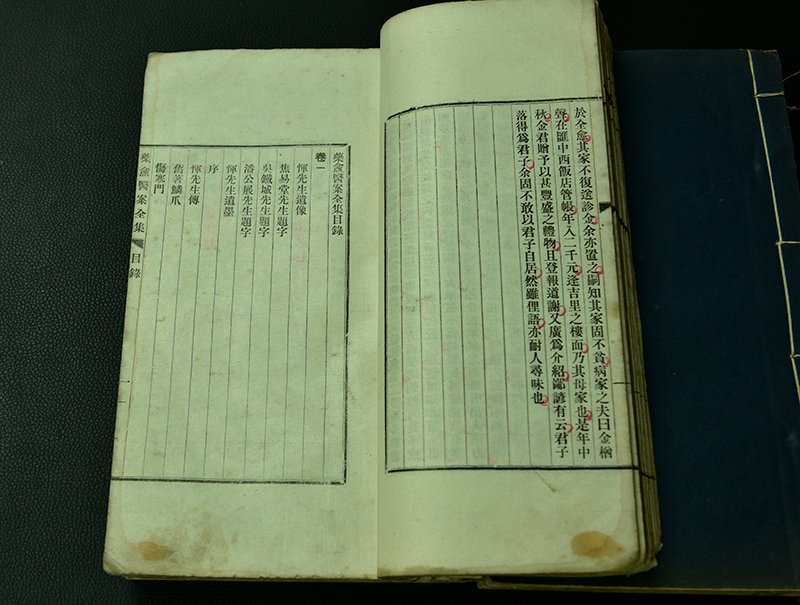 於全愈其家不復送診金余亦置之嗣知其家固不貧病家之夫曰金楢
聲在匯中西飯店管帳年入二千元逢吉里之樓面乃其母家也是年中
秋金君贈予以甚豐盛之禮物且登報道謝又廣爲介紹鄙諺有云君子
落得爲君子余固不敢以君子自居然雖俚語亦耐人尋味也
藥盦醫案全集目錄
卷一
惲先生遺像
焦易堂先生題字
吳鐵城先生題字
潘公展先生題字
惲先生遺墨
序
惲先生傳
舊著鱗爪
傷寒門
藥盦醫案全集 目錄